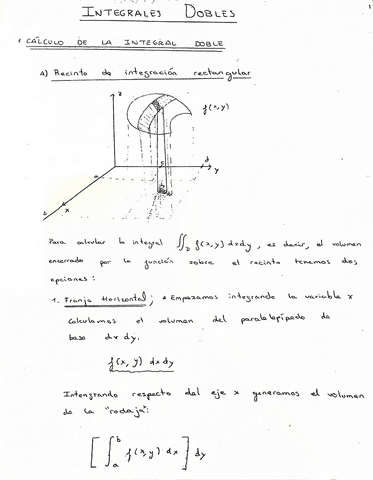 INTEGRALES DOBLES
1
1 CÁLCULO DE LA INTEGRAL DOBLE
A) Recinto de integración rectangular
z
f(x,y)
a
d
y
b
x
Para calcular la integral ∬_D f(x,y) dxdy, es decir, el volumen
encerrado por la función sobre el recinto tenemos dos
opciones:
1. Franja Horizontal; * Empezamos integrando la variable x
Calculamos el volumen del paralelepípedo de
base dx dy.
f(x,y) dxdy
Intengrando respecto del eje x generamos el volumen
de la "rodaja":
[ ∫_a^b f(x,y) dx ] dy